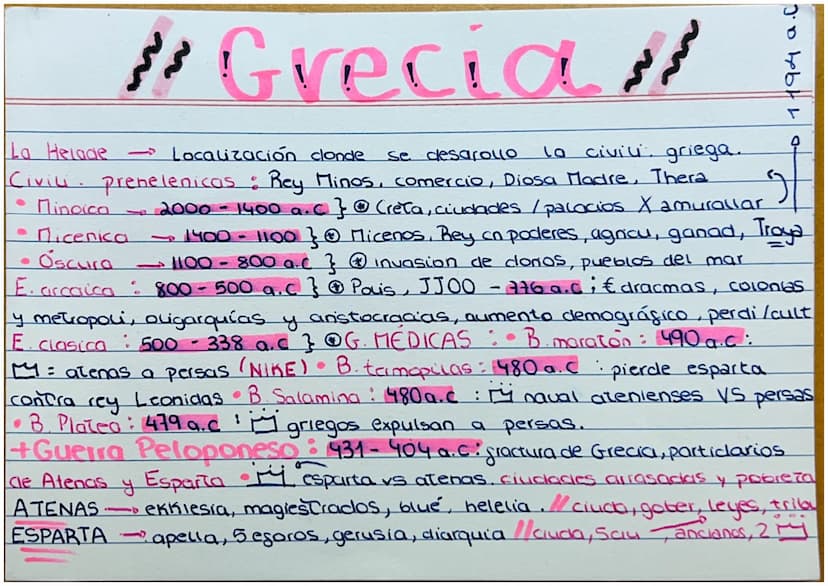 Grecia
1194 a.C
La Helade → Localización donde se desarollo la civili. griega.
Civili. prehelenicas : Rey Minos, comercio, Diosa Madre, Thera
• Minoica → 2000 - 1400 a.C } Creta, ciudades / palacios X amurallar
• Micenica → 1400 - 1100 } Micenos, Rey cn poderes, agricu, ganad, Troya
• Óscura → 1100 - 800 a.C } invasion de dorios, pueblos del mar
E. arcaica : 800 - 500 a.C } Polis, JJOO - 776 a.C ; € dracmas, colonias
y metropoli, oligarquías y aristocracias, aumento demográfico, perdi/cult
E. clasica : 500 - 338 a.C } G. MÉDICAS : • B. maratón : 490 a.C :
= atenas a persas (NIKE) • B. termopilas : 480 a.C : pierde esparta
contra rey Leonidas • B. Salamina : 480 a.C : naval atenienses VS persas
• B. Platea : 479 a.C : griegos expulsan a persas.
+Guerra Peloponeso : 431 - 404 a.C : fractura de Grecia, particlarios
de Atenas y Esparta • esparta vs atenas. ciudades arrasadas y pobreza
ATENAS → ekklesia, magiestrados, blué, helelia. // ciuda, gober, leyes, tribu
ESPARTA → apella, 5 eforos, gerusia, diarquia // ciuda, 5ciu, ancianos, 2